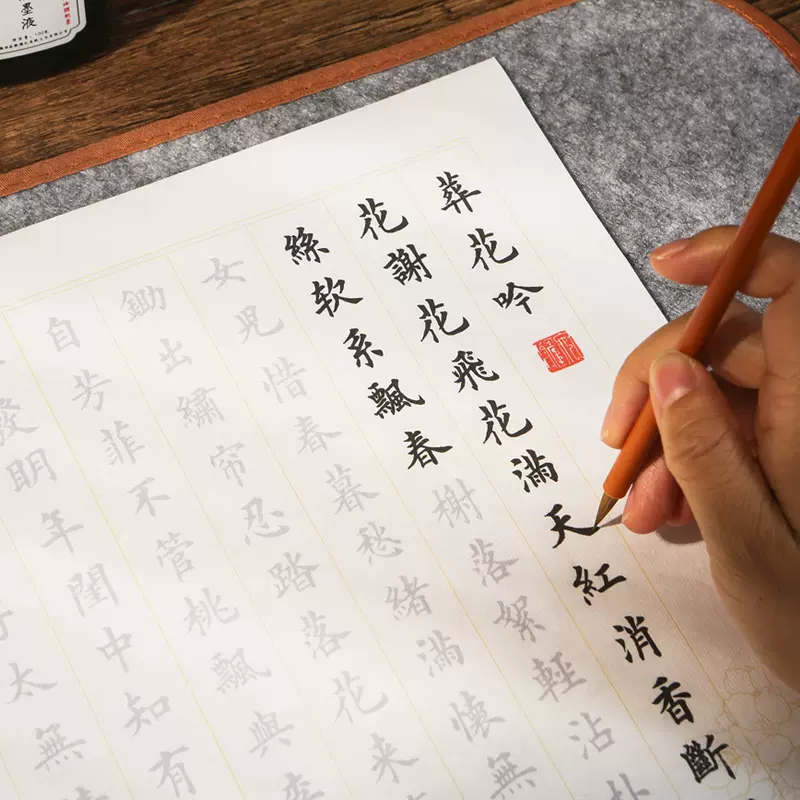 墨液
葬花吟
花謝花飛花滿天紅消香斷
絲软系飄春榭落絮輕沾扑
女児惜春暮愁緒滿懷無
鋤出繡帘忍踏落花來
自芳菲不管桃飄與李
發明年閨中知有
子太無